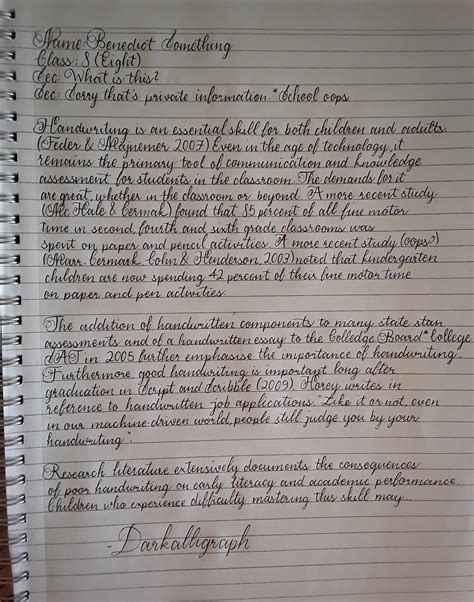 Name: Benedict Something
Class: 8 (Eight)
Sec: What is this?
Sec: Sorry that's private information.* School oops
Handwriting is an essential skill for both children and adults.
(Feder & Majnemer 2007) Even in the age of technology, it
remains the primary tool of communication and knowledge
assessment for students in the classroom. The demands for it
are great, whether in the classroom or beyond. A more recent study
(Mc Hale & Cermak) found that 85 percent of all fine motor
time in second, fourth and sixth grade classrooms was
spent on paper and pencil activities. A more recent study (oops?)
(Marr. Cermark. Cohn & Henderson, 2003) noted that kindergarten
children are now spending 42 percent of their fine motor time
on paper and pen activities.
The addition of handwritten components to many state stan
assessments and of a handwritten essay to the Colledge Board* College
SAT in 2005 further emphasise the importance of handwriting.
Furthermore, good handwriting is important long after
graduation in Script and Scribble (2009) Florey writes in
reference to handwritten job applications. "Like it or not, even
in our machine-driven world, people still judge you by your
handwriting".
Research literature extensively documents the consequences
of poor handwriting on early literacy and academic performance.
Children who experience difficulty mastering this skill may...
-Darkalligraph